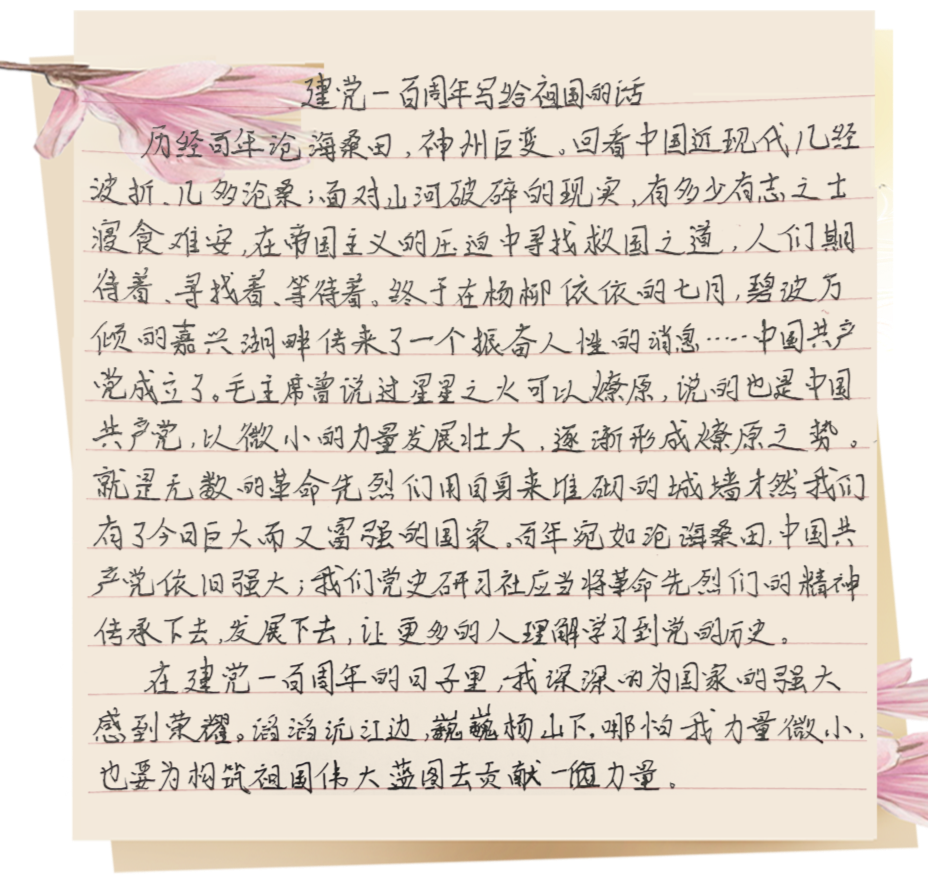 建党一百周年写给祖国的话
历经百年沧海桑田，神州巨变。回看中国近现代几经
波折、几多沧桑；面对山河破碎的现实，有多少有志之士
寝食难安，在帝国主义的压迫中寻找救国之道，人们期
待着、寻找着、等待着。终于在杨柳依依的七月，碧波万
倾的嘉兴湖畔传来了一个振奋人性的消息……中国共产
党成立了。毛主席曾说过星星之火可以燎原，说的也是中国
共产党，以微小的力量发展壮大，逐渐形成燎原之势。
就是无数的革命先烈们用自身来堆砌的城墙才然我们
有了今日巨大而又富强的国家。百年宛如沧海桑田，中国共
产党依旧强大；我们党史研习社应当将革命先烈们的精神
传承下去，发展下去，让更多的人理解学习到党的历史。
在建党一百周年的日子里，我深深的为国家的强大
感到荣耀。滔滔沅江边，巍巍杨山下，哪怕我力量微小，
也要为构筑祖国伟大蓝图去贡献一份力量。